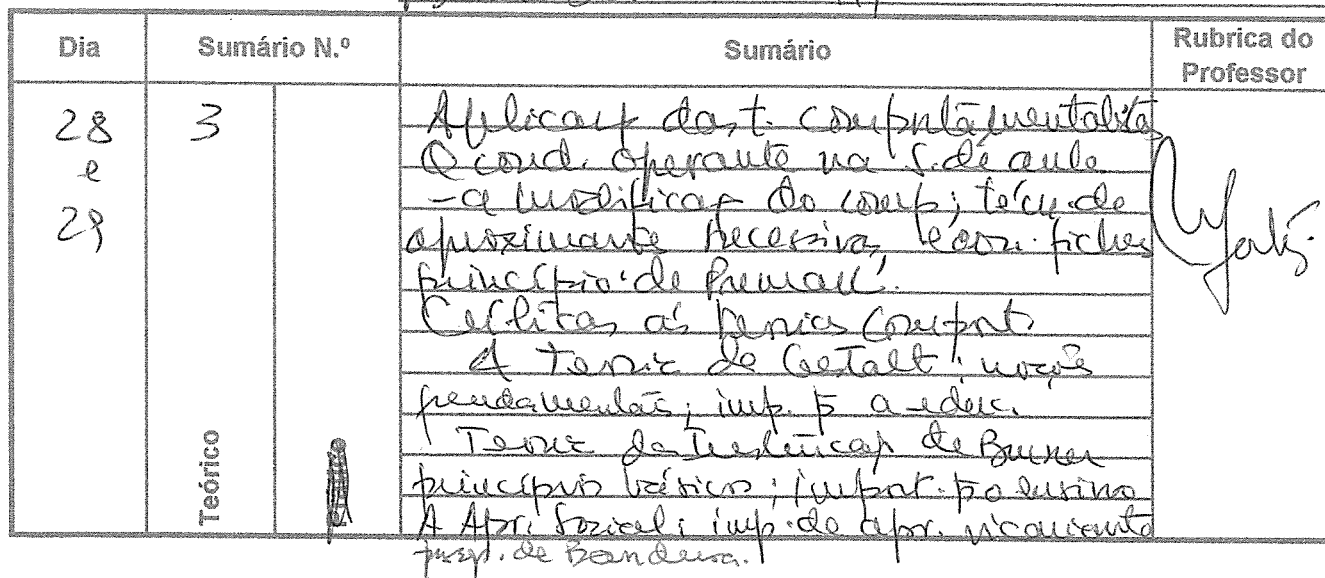 Dia
Sumário N.º
Sumário
Rubrica do
Professor
28
e
29
3
Teórico
Aplicaç das t. comportamentalistas
O cond. operante na S. de aula
- a modificaç do comp; técn. de
aproximante sucessiva, econ. fichas
princípio de Premack.
Críticas às teorias Comport.
A teoria de Gestalt: noções
fundamentais; imp. p a educ.
Teoria da Instruçaç de Bruner
princípios básicos; import. p o ensino
A Apr. Social; imp. de apr. vicariante
de Bandura.